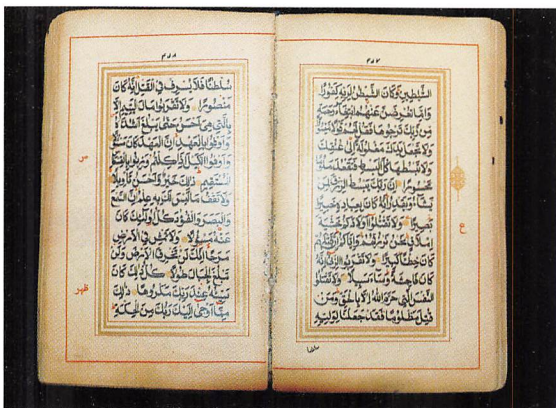 الشَّيٰطِينِ وَكَانَ الشَّيْطٰنُ لِرَبِّهِ كَفُورًا
وَاِمَّا تُعْرِضَنَّ عَنْهُمُ ابْتِغَاءَ رَحْمَةٍ
مِنْ رَبِّكَ تَرْجُوهَا فَقُلْ لَهُمْ قَوْلًا مَيْسُورًا
وَلَا تَجْعَلْ يَدَكَ مَغْلُولَةً اِلٰى عُنُقِكَ
وَلَا تَبْسُطْهَا كُلَّ الْبَسْطِ فَتَقْعُدَ مَلُومًا
مَحْسُورًا اِنَّ رَبَّكَ يَبْسُطُ الرِّزْقَ لِمَنْ
يَشَاءُ وَيَقْدِرُ اِنَّهُ كَانَ بِعِبَادِهِ خَبِيرًا
بَصِيرًا وَلَا تَقْتُلُوا اَوْلَادَكُمْ خَشْيَةَ
اِمْلَاقٍ نَحْنُ نَرْزُقُهُمْ وَاِيَّاكُمْ اِنَّ قَتْلَهُمْ
كَانَ خِطْئًا كَبِيرًا وَلَا تَقْرَبُوا الزِّنٰى اِنَّهُ
كَانَ فَاحِشَةً وَسَاءَ سَبِيلًا وَلَا تَقْتُلُوا
النَّفْسَ الَّتِي حَرَّمَ اللّٰهُ اِلَّا بِالْحَقِّ وَمَنْ
قُتِلَ مَظْلُومًا فَقَدْ جَعَلْنَا لِوَلِيِّهِ
سلطانا
ع
٤٥٨
سُلْطَانًا فَلَا يُسْرِفْ فِي الْقَتْلِ اِنَّهُ كَانَ
مَنْصُورًا وَلَا تَقْرَبُوا مَالَ الْيَتِيمِ اِلَّا
بِالَّتِي هِيَ اَحْسَنُ حَتّٰى يَبْلُغَ اَشُدَّهُ
وَاَوْفُوا بِالْعَهْدِ اِنَّ الْعَهْدَ كَانَ مَسْؤُلًا
وَاَوْفُوا الْكَيْلَ اِذَا كِلْتُمْ وَزِنُوا بِالْقِسْطَاسِ
الْمُسْتَقِيمِ ذٰلِكَ خَيْرٌ وَاَحْسَنُ تَاْوِيلًا
وَلَا تَقْفُ مَا لَيْسَ لَكَ بِهِ عِلْمٌ اِنَّ السَّمْعَ
وَالْبَصَرَ وَالْفُؤَادَ كُلُّ اُولٰئِكَ كَانَ
عَنْهُ مَسْؤُلًا وَلَا تَمْشِ فِي الْاَرْضِ
مَرَحًا اِنَّكَ لَنْ تَخْرِقَ الْاَرْضَ وَلَنْ
تَبْلُغَ الْجِبَالَ طُولًا كُلُّ ذٰلِكَ كَانَ
سَيِّئُهُ عِنْدَ رَبِّكَ مَكْرُوهًا ذٰلِكَ
مِمَّا اَوْحٰى اِلَيْكَ رَبُّكَ مِنَ الْحِكْمَةِ
ظهر